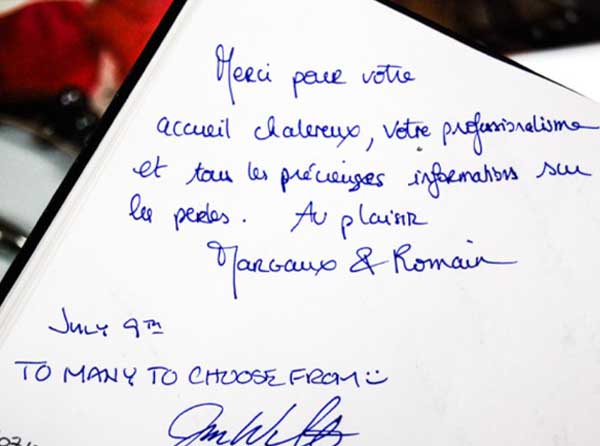 Merci pour votre
accueil chalereux, votre professionalisme
et tous les précieuses informations sur
les perles. Au plaisir
Margaux & Romain
July 9th
TO MANY TO CHOOSE FROM :)